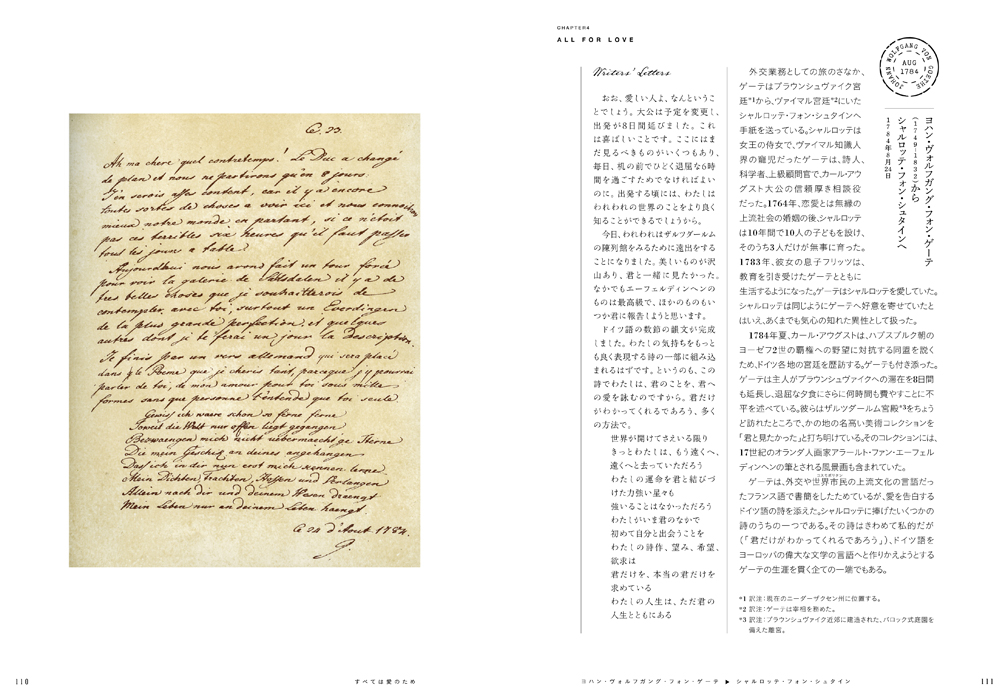 Ce. 23.
Ah ma chere quel contretemps! Le Duc a changé
de plan et nous ne partirons qu'en 8 jours.
J'en serois assez content, car il y a encore
toutes sortes de choses a voir ici et nous
mieux notre monde en partant, si ce n'etoit
pas ces terribles six heures qu'il faut passer
tous les jours a table.
Aujourdhui nous avons fait un tour
pour voir la galerie de il y a de
tres belles choses que je souhaitterois de
contempler avec toi, surtout un Everdingen
de la plus grande perfection, et quelques
autres dont je te ferai un jour la Description.
Je finis par un vers allemand qui sera placé
dans le Poeme que je cheris tant, parceque j'y pourrai
parler de toi, de mon amour pour toi sous mille
formes sans que personne l'entende que toi seule.
Gewiss ich waere schon so ferne ferne
Soweit die Welt nur offen liegt gegangen
Bezwaengen mich nicht uebermaechtge Sterne
Die mein Geschick an deines angehangen
Dass ich in dir nun erst mich kennen lerne
Mein Dichten, Trachten, Hoffen und Verlangen
Allein nach dir und deinem Wesen draengt
Mein Leben nur an deinem Leben haengt.
Ce 24 d'Aout 1784.
110
すべては愛のため
CHAPTER4
ALL FOR LOVE
JOHANN WOLFGANG VON GOETHE
AUG
1784
ヨハン・ヴォルフガング・フォン・ゲーテ
(1749-1832)から
シャルロッテ・フォン・シュタインへ
1784年8月24日
Writers' Letters
おお、愛しい人よ、なんというこ
とでしょう。大公は予定を変更し、
出発が8日間延びました。これ
は喜ばしいことです。ここにはま
だ見るべきものがいくつもあり、
毎日、机の前でひどく退屈な6時
間を過ごすためでなければよい
のに。出発する頃には、わたしは
われわれの世界のことをより良く
知ることができるでしょうから。
今日、われわれはザルツダールム
の陳列館をみるために遠出をする
ことになりました。美しいものが沢
山あり、君と一緒に見たかった。
なかでもエーフェルディンヘンの
ものは最高級で、ほかのものもい
つか君に報告しようと思います。
ドイツ語の数節の韻文が完成
しました。わたしの気持ちをもっと
も良く表現する詩の一部に組み込
まれるはずです。というのも、この
詩でわたしは、君のことを、君へ
の愛を詠むのですから。君だけ
がわかってくれるであろう、多く
の方法で。
世界が開けてさえいる限り
きっとわたしは、もう遠くへ、
遠くへと去っていただろう
わたしの運命を君と結びづ
けた力強い星々も
強いることはなかっただろう
わたしがいま君のなかで
初めて自分と出会うことを
わたしの詩作、望み、希望、
欲求は
君だけを、本当の君だけを
求めている
わたしの人生は、ただ君の
人生とともにある
外交業務としての旅のさなか、
ゲーテはブラウンシュヴァイク宮
廷*1から、ヴァイマル宮廷*2にいた
シャルロッテ・フォン・シュタインへ
手紙を送っている。シャルロッテは
女王の侍女で、ヴァイマル知識人
界の寵児だったゲーテは、詩人、
科学者、上級顧問官で、カール・アウ
グスト大公の信頼厚き相談役
だった。1764年、恋愛とは無縁の
上流社会の婚姻の後、シャルロッテ
は10年間で10人の子どもを設け、
そのうち3人だけが無事に育った。
1783年、彼女の息子フリッツは、
教育を引き受けたゲーテとともに
生活するようになった。ゲーテはシャルロッテを愛していた。
シャルロッテは同じようにゲーテへ好意を寄せていたと
はいえ、あくまでも気心の知れた異性として扱った。
1784年夏、カール・アウグストは、ハプスブルク朝の
ヨーゼフ2世の覇権への野望に対抗する同盟を説く
ため、ドイツ各地の宮廷を歴訪する。ゲーテも付き添った。
ゲーテは主人がブラウンシュヴァイクへの滞在を8日間
も延長し、退屈な夕食にさらに何時間も費やすことに不
平を述べている。彼らはザルツダールム宮殿*3をちょう
ど訪れたところで、かの地の名高い美術コレクションを
「君と見たかった」と打ち明けている。そのコレクションには、
17世紀のオランダ人画家アラールト・ファン・エーフェル
ディンヘンの筆とされる風景画も含まれていた。
ゲーテは、外交や世界市民の上流文化の言語だっ
たフランス語で書簡をしたためているが、愛を告白する
ドイツ語の詩を添えた。シャルロッテに捧げたいくつかの
詩のうちの一つである。その詩はきわめて私的だが
(「君だけがわかってくれるであろう」)、ドイツ語を
ヨーロッパの偉大な文学の言語へと作りかえようとする
ゲーテの生涯を貫く企ての一端でもある。
*1 訳注：現在のニーダーザクセン州に位置する。
*2 訳注：ゲーテは宰相を務めた。
*3 訳注：ブラウンシュヴァイク近郊に建造された、バロック式庭園を
備えた離宮。
ヨハン・ヴォルフガング・フォン・ゲーテ ▶ シャルロッテ・フォン・シュタイン
111